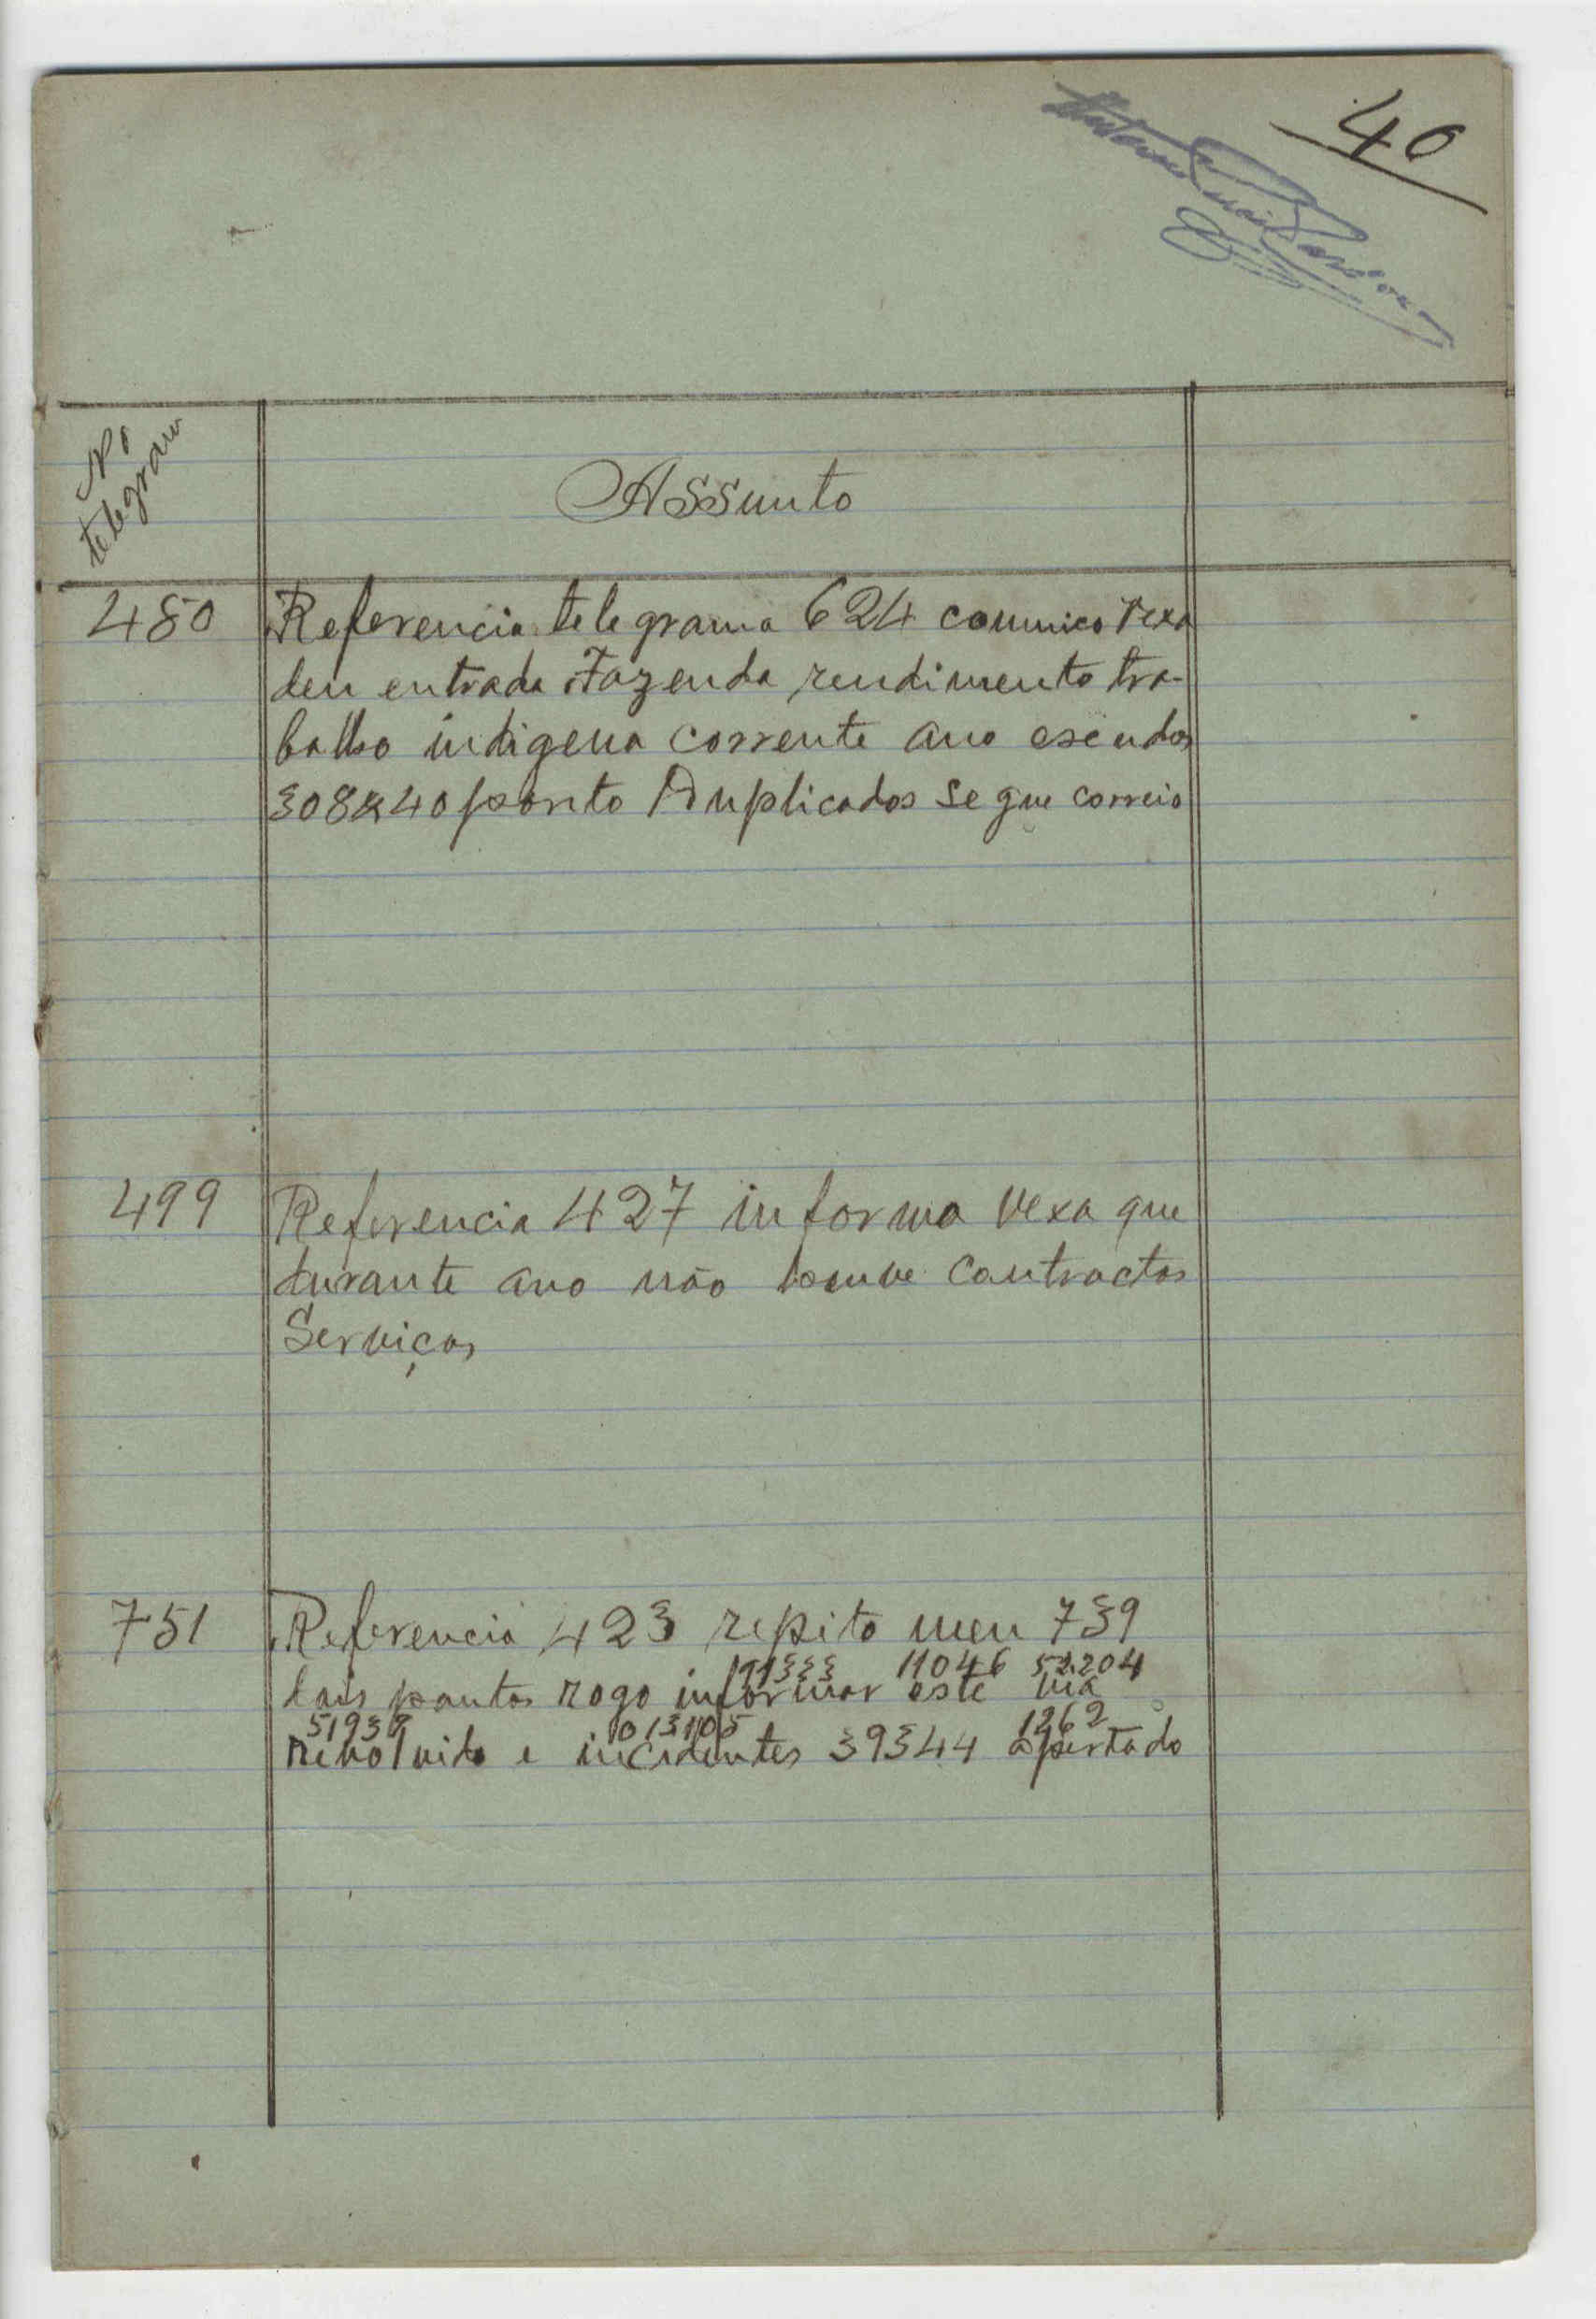 40
No
telegram
Assunto
480 Referencia telegrama 624 comunico Vexa
deu entrada Fazenda rendimento tra-
balho indigena corrente ano escudos
308$40 ponto Duplicados segue correio
499 Referencia 427 informo Vexa que
durante ano não houve contractos
Serviços
751 Referencia 423 repito meu 739
11333 11046 52204
pontos rogo informar este via
51939 1013105 1262
e incidentes 39344 apertado